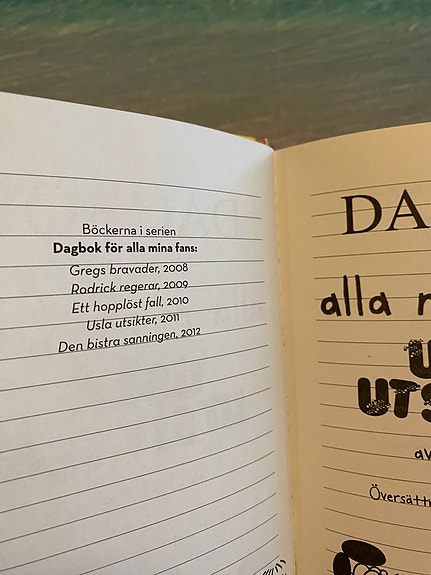 Böckerna i serien
Dagbok för alla mina fans:
Gregs bravader, 2008
Rodrick regerar, 2009
Ett hopplöst fall, 2010
Usla utsikter, 2011
Den bistra sanningen, 2012
DA
alla
U
UTS
av
Översättn